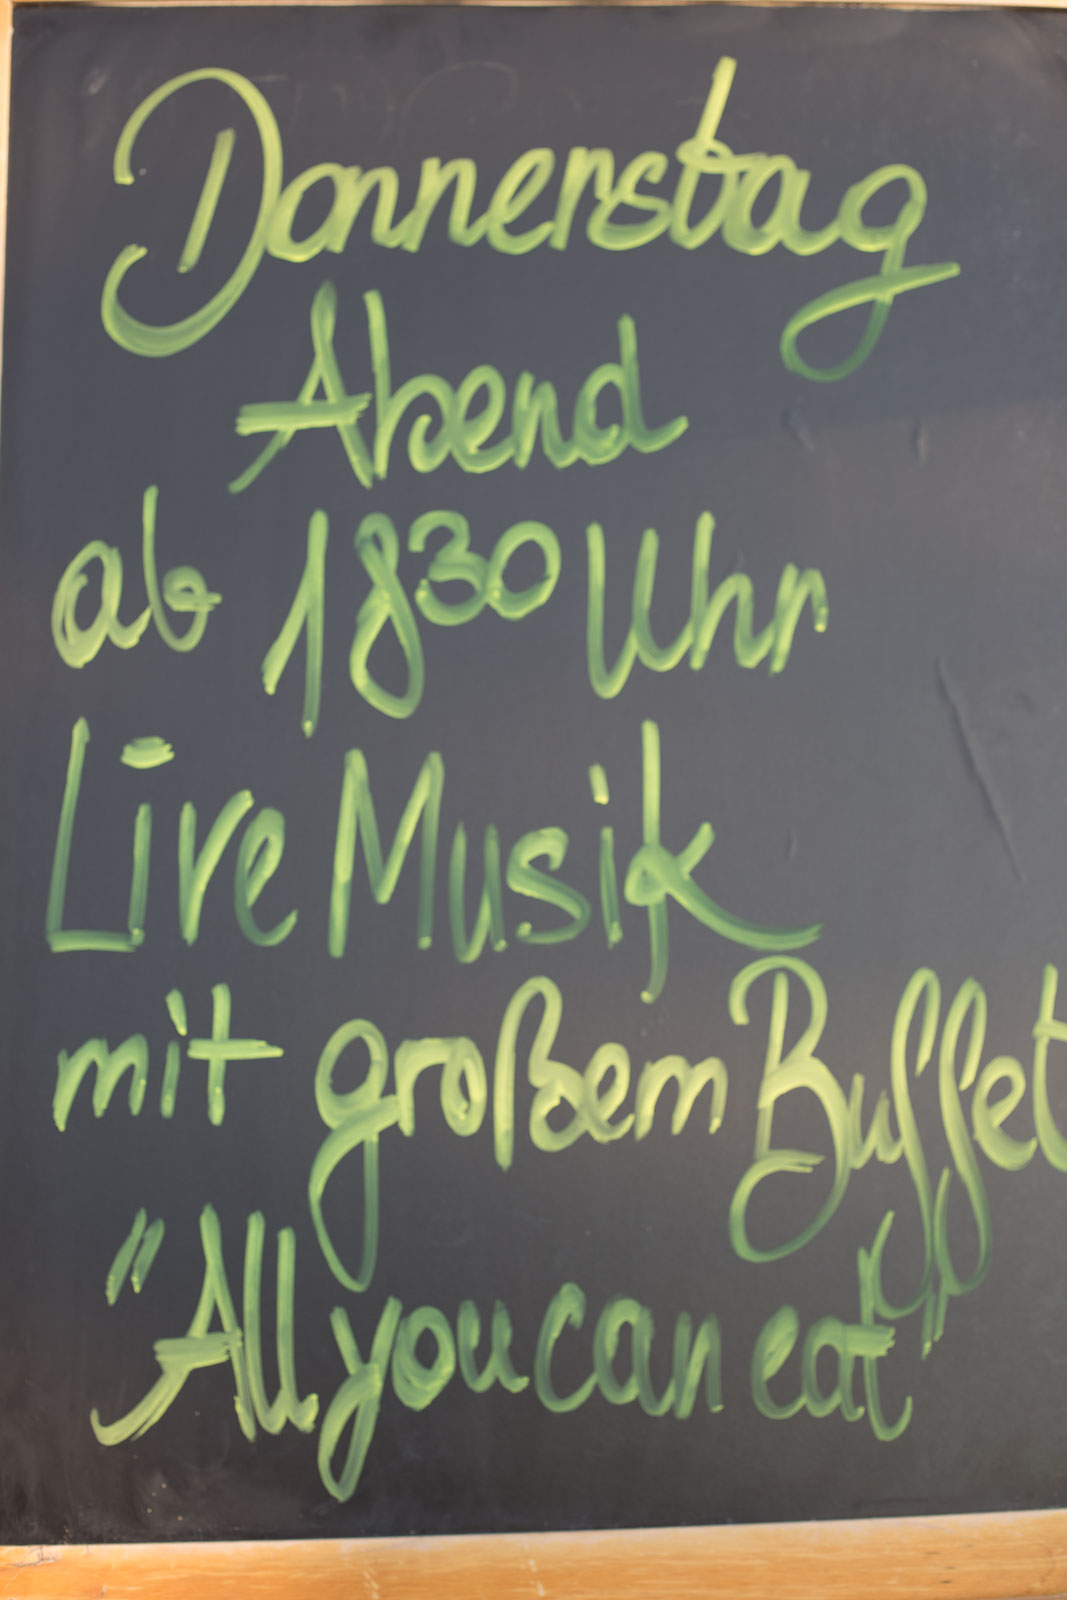 Donnerstag
Abend
ab 18³⁰ Uhr
Live Musik
mit großem Buffet
"All you can eat"